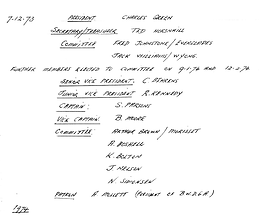 7-12-73 PRESIDENT CHARLES GREEN
SECRETARY/TREASURER TED HORSNAILL
COMMITTEE FRED JOHNSTONE /
JACK WILLIAMS / WYONG.
FURTHER MEMBERS ELECTED TO COMMITTEE ON 9-1-74 AND 12-2-74
SENIOR VICE PRESIDENT: C. BEHRENS
JUNIOR VICE PRESIDENT R. KENNEDY
CAPTAIN: S. PARSONS
VICE CAPTAIN: B. MOORE
COMMITTEE: ARTHUR BROWN / MORISSET
K. BOLTON
J. NELSON
N. SIMONSEN
PATRON (PRESIDENT OF
1974